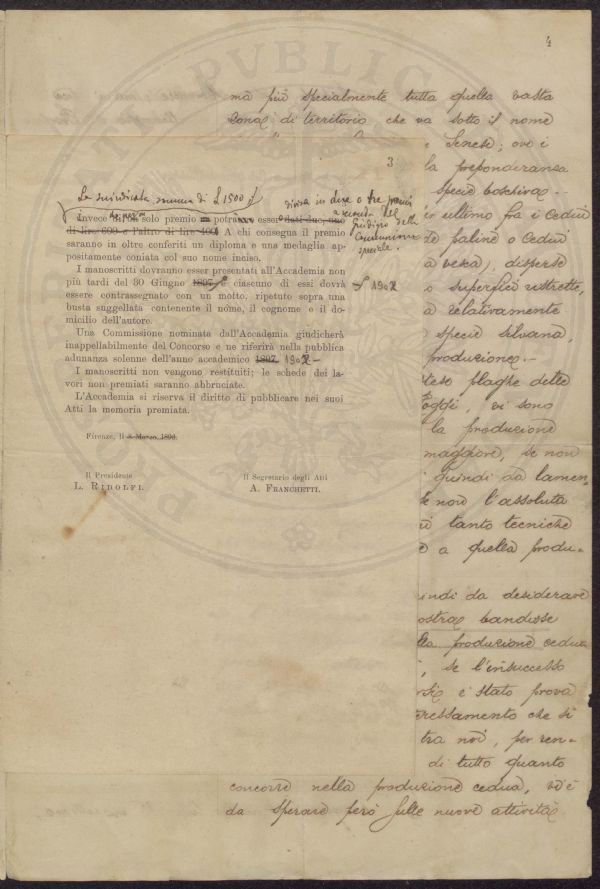 4
ma più specialmente tutta quella vasta
zona di territorio che va sotto il nome
Senese; ove i
la preponderanza
specie boschiva
ultimo fra i Cedui
paline o Cedui
disperse
superfici ristrette,
relativamente
specie silvana,
produzione.-
plaghe delle
vi sono
la produzione
maggiore, se non
quindi da lamen-
non l'assoluta
tanto tecniche
a quella produ-
da desiderare
bandisse
produzione cedua
se l'insuccesso
è stato prova
che si
tra noi, per ren-
di tutto quanto
concorre nella produzione cedua, v'è
da sperare però sulle nuove attività
3
La suindicata somma di £ 1500 potrà
divisa in due o tre premi
a seconda del
giudizio della
Commissione
speciale.
Invece di un solo premio potranno esser dati due, uno
di lire 600 e l'altro di lire 400. A chi consegua il premio
saranno in oltre conferiti un diploma e una medaglia ap-
positamente coniata col suo nome inciso.
I manoscritti dovranno esser presentati all'Accademia non
più tardi del 30 Giugno 1897 e ciascuno di essi dovrà 190
essere contrassegnato con un motto, ripetuto sopra una
busta suggellata contenente il nome, il cognome e il do-
micilio dell'autore.
Una Commissione nominata dall'Accademia giudicherà
inappellabilmente del Concorso e ne riferirà nella pubblica
adunanza solenne dell'anno accademico 1897. 190
I manoscritti non vengono restituiti; le schede dei la-
vori non premiati saranno abbruciate.
L'Accademia si riserva il diritto di pubblicare nei suoi
Atti la memoria premiata.
Firenze, li 8 Marzo, 1896.
Il Presidente
L. Ridolfi.
Il Segretario degli Atti
A. Franchetti.